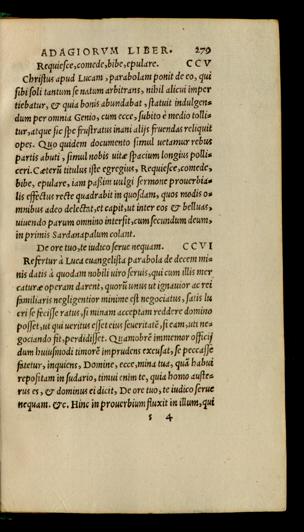 ADAGIORVM LIBER. 279
Requiesce, comede, bibe, epulare. CCV
Christus apud Lucam, parabolam ponit de eo, qui
sibi soli tantum se natum arbitrans, nihil alicui imper
tiebatur, & quia bonis abundabat, statuit indulgen-
dum per omnia Genio, cum ecce, subito è medio tolli-
tur, atque sic spe frustratus inani alijs fruendas reliquit
opes. Quo quidem documento simul uetamur rebus
partis abuti, simul nobis uitæ spacium longius polli-
ceri. Cæterũ titulus iste egregius, Requiesce, comede,
bibe, epulare, iam paßim uulgi sermone prouerbia-
lis effectus recte quadrabit in quosdam, quos modis o-
mnibus adeo delectat, et capit, ut inter eos & belluas,
uiuendo parum omnino intersit, cum secundum deum,
in primis Sardanapalum colant.
De ore tuo, te iudico serue nequam. CCVI
Refertur à Luca euangelista parabola de decem mi-
nis datis à quodam nobili uiro seruis, qui cum illis mer
caturæ operam darent, quorũ unus ut ignauior ac rei
familiaris negligentior minime est negociatus, satis lu
cri se fecisse ratus, si minam acceptam reddere domino
posset, ut qui ueritus esset eius seueritatẽ, si eam, ut ne-
gociando fit, perdidisset. Quamobrẽ immemor officij
dum huiusmodi timorẽ imprudens excusat, se peccasse
fatetur, inquiens, Domine, ecce, mina tua, quã habui
repositam in sudario, timui enim te, quia homo auste-
rus es, & dominus ei dicit, De ore tuo, te iudico serue
nequam. &c. Hinc in prouerbium fluxit in illum, qui
s 4